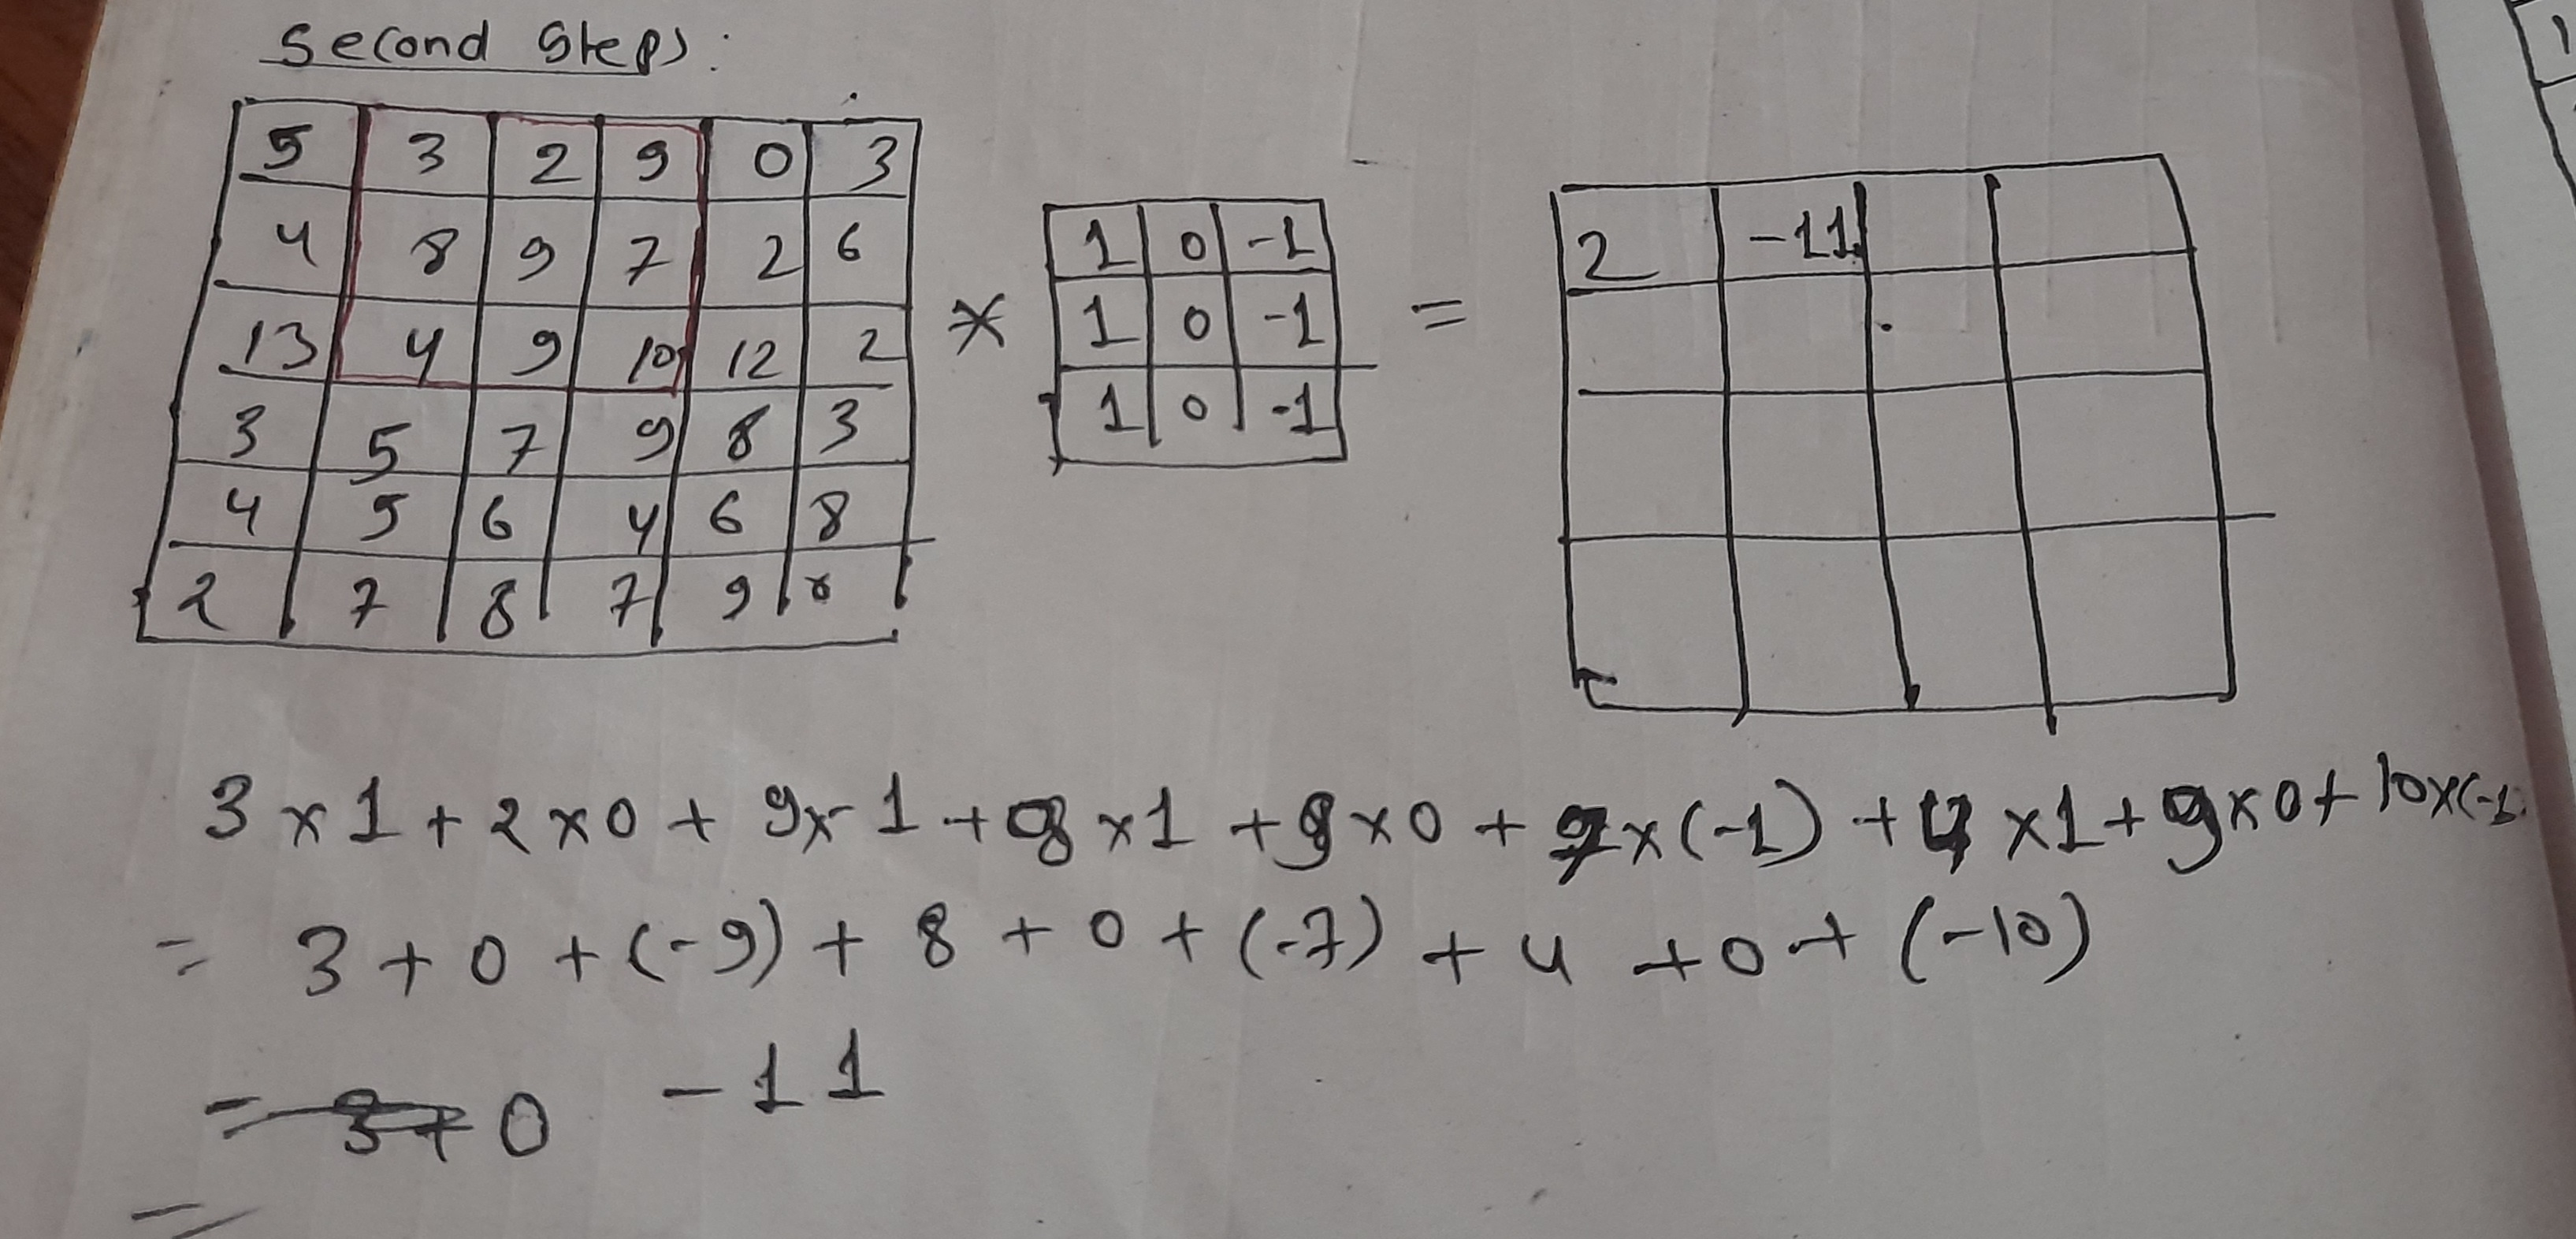 Second Steps:
5 3 2 9 0 3
4 8 9 7 2 6
13 4 9 10 12 2
3 5 7 9 8 3
4 5 6 4 6 8
2 7 8 7 9
*
1 0 -1
1 0 -1
1 0 -1
=
2 -11
3 × 1 + 2 × 0 + 9×-1 + 8 × 1 + 9 × 0 + 7 × (-1) + 4 × 1 + 9 × 0 + 10×(-1
= 3 + 0 + (-9) + 8 + 0 + (-7) + 4 + 0 + (-10)
= 3+ 0 -11
=